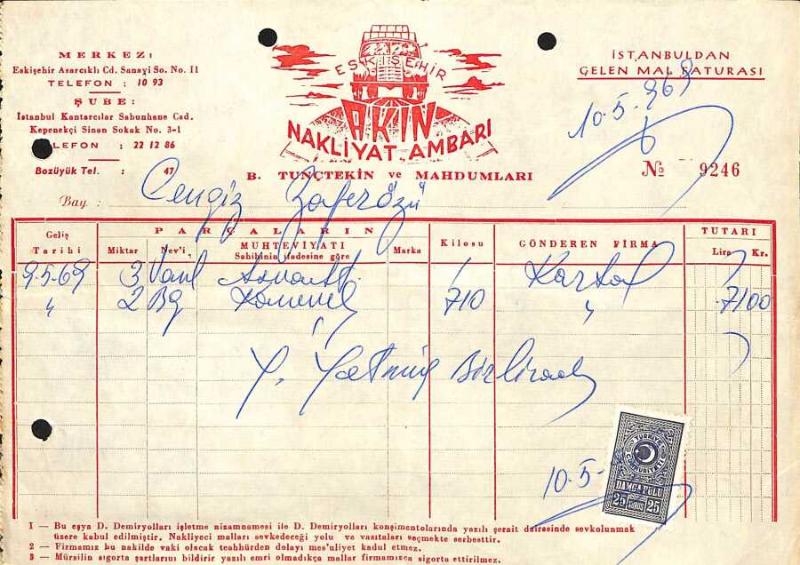 MERKEZ:
Eskişehir Asarcıklı Cd. Sanayi So. No. 11
TELEFON : 10 93
ŞUBE:
İstanbul Kantarcılar Sabunhane Cad.
Kepenekçi Sinan Sokak No. 3-1
LEFON : 22 12 86
Bozüyük Tel. : 47
ESKİŞEHİR
AKIN
NAKLİYAT AMBARI
B. TUNÇTEKİN ve MAHDUMLARI
İSTANBULDAN
GELEN MAL FATURASI
10-5-969
№ 9246
Bay. : Cengiz Zaferözü
Geliş Tarihi
PARÇALARIN
Miktar
Nev'i
MUHTEVİYATI
Sahibinin ifadesine göre
Marka
Kilosu
GÖNDEREN FİRMA
TUTARI
Lira Kr.
9-5-69 3 Kartal
" 2 Bg 710 " 7100
Y. Yetmiş Birliradır
10-5-
TÜRKİYE CUMHURİYETİ
DAMGA PULU
25 KURUŞ 25
1 — Bu eşya D. Demiryolları işletme nizamnamesi ile D. Demiryolları konşimentolarında yazılı şerait dairesinde sevkolunmak
üzere kabul edilmiştir. Nakliyeci malları sevkedeceği yolu ve vasıtaları seçmekte serbesttir.
2 — Firmamız bu nakilde vaki olacak teahhürden dolayı mes'uliyet kabul etmez.
3 — Mürsilin sigorta şartlarını bildirir yazılı emri olmadıkça mallar firmamızca sigorta ettirilmez.